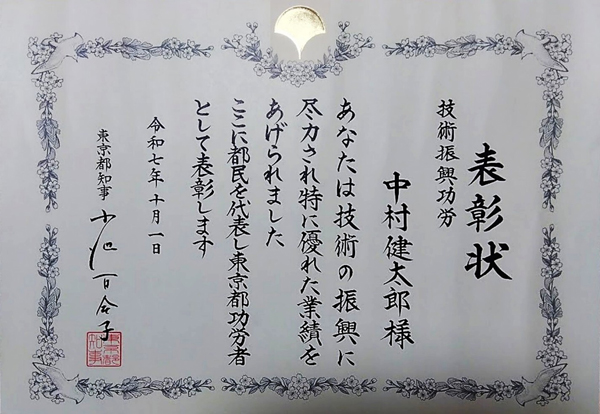 表彰状
技術振興功労
中村健太郎様
あなたは技術の振興に
尽力され特に優れた業績を
あげられました
ここに都民を代表し東京都功労者
として表彰します
令和七年十月一日
東京都知事 小池百合子